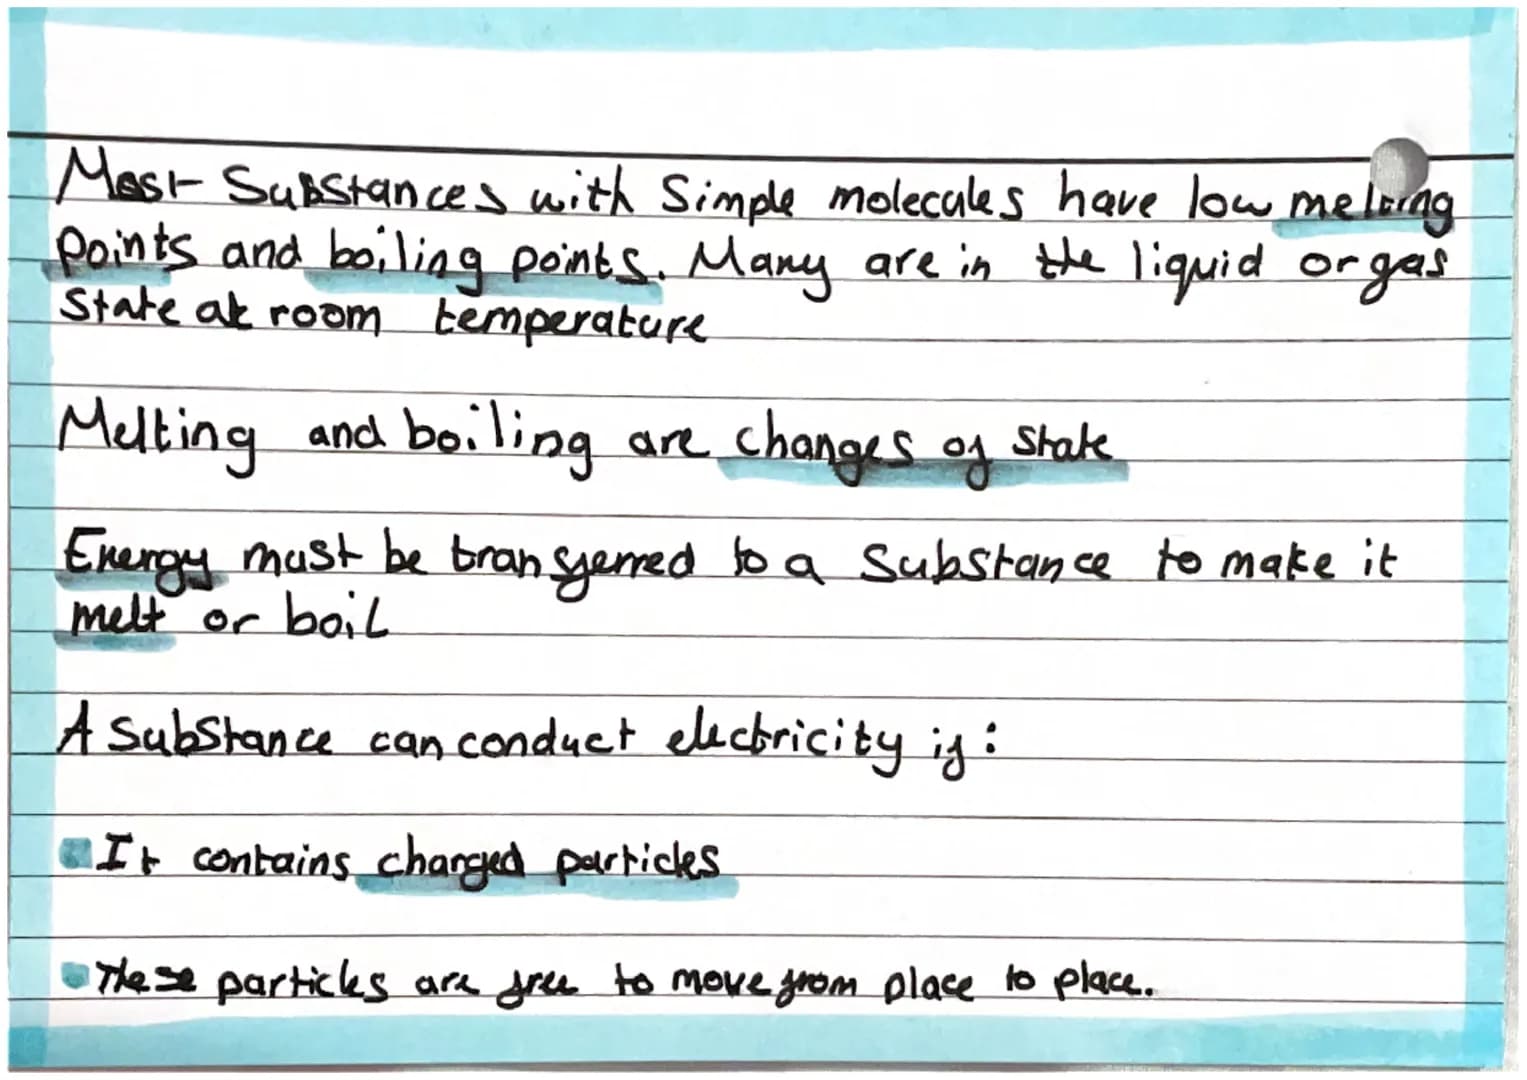 Most Substances with Simple molecules have low melting
points and boiling points. Many are in the liquid or gas
State at room temperature
Melting and boiling are changes of State
Energy must be transferred to a Substance to make it
melt or boil
A Substance can conduct electricity if:
It contains charged particles
These particles are free to move from place to place.